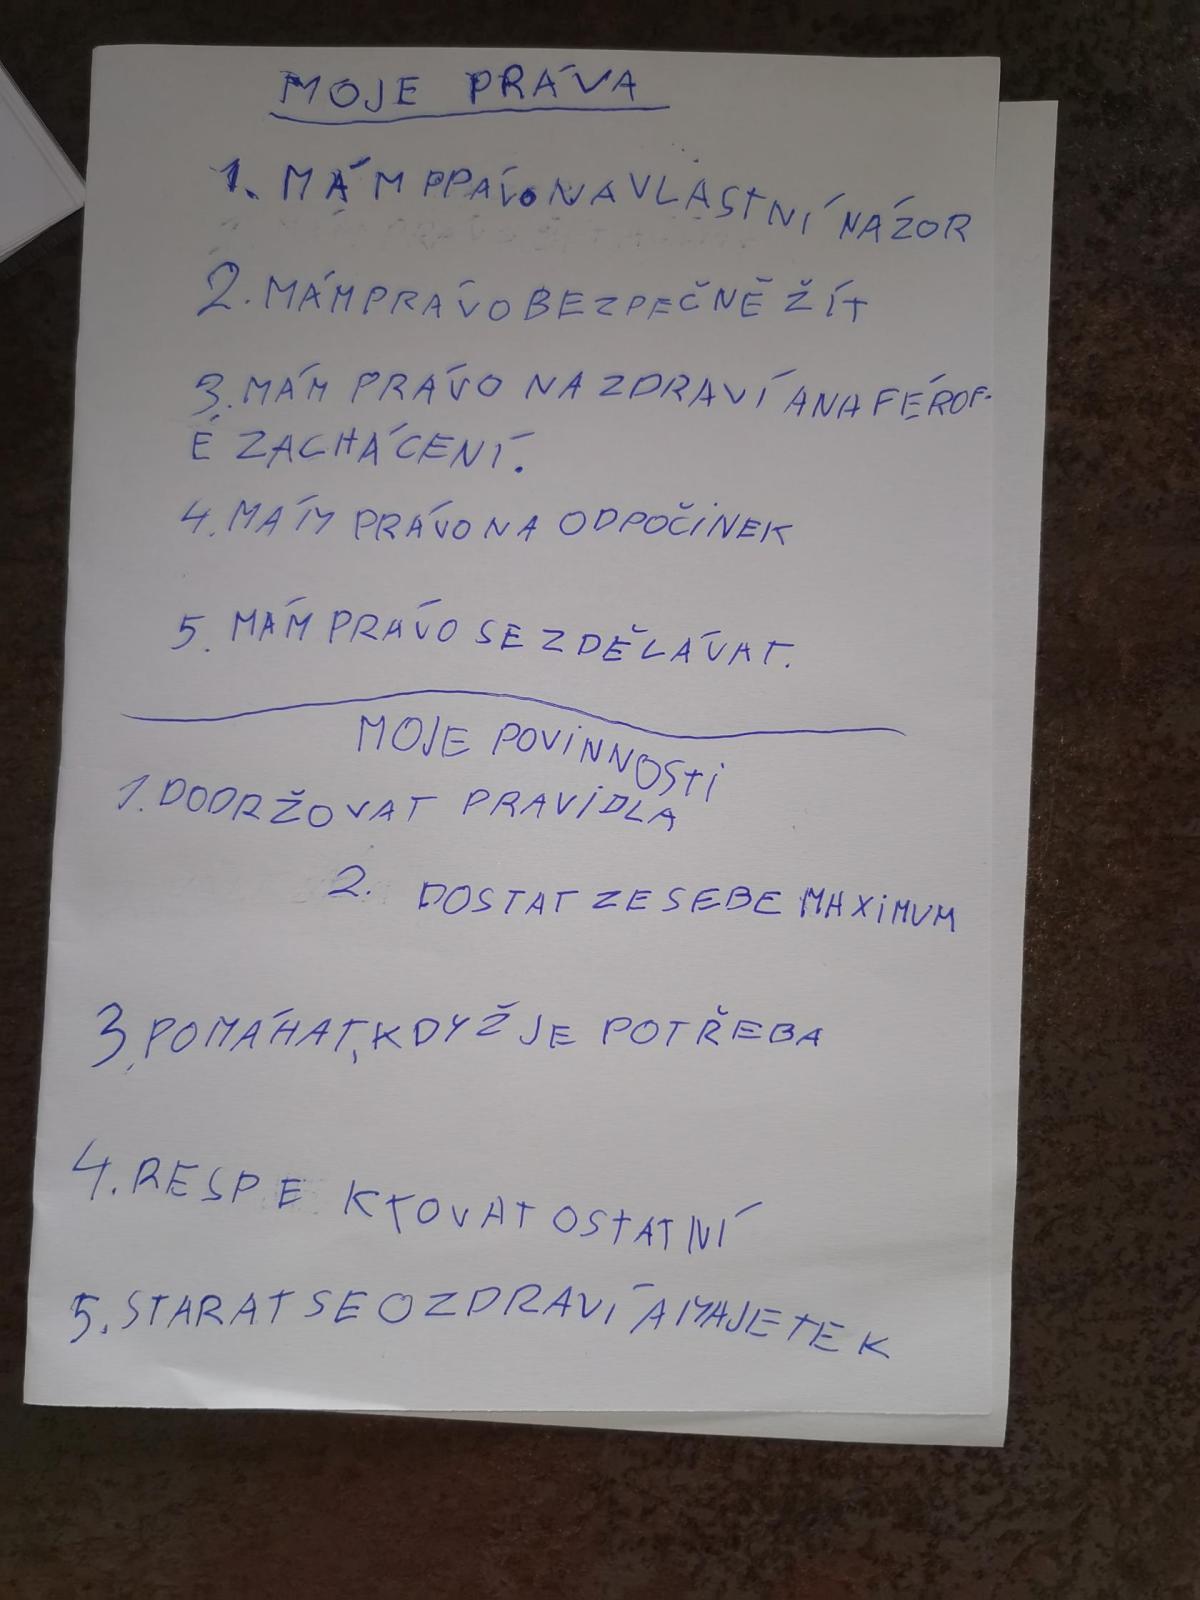 MOJE PRÁVA
1. MÁM PPÁVO NA VLASTNÍ NÁZOR
2. MÁM PRÁVO BEZPEČNĚ ŽÍT
3. MÁM PRÁVO NA ZDRAVÍ A NA FÉROF-
É ZACHÁCENÍ.
4. MÁM PRÁVO NA ODPOČINEK
5. MÁM PRÁVO SE ZDĚLÁVAT.
MOJE POVINNOSTI
1. DODRŽOVAT PRAVIDLA
2. DOSTAT ZE SEBE MAXIMUM
3. POMÁHAT, KDYŽ JE POTŘEBA
4. RESPEKTOVAT OSTATNÍ
5. STARAT SE O ZDRAVÍ A MAJETEK